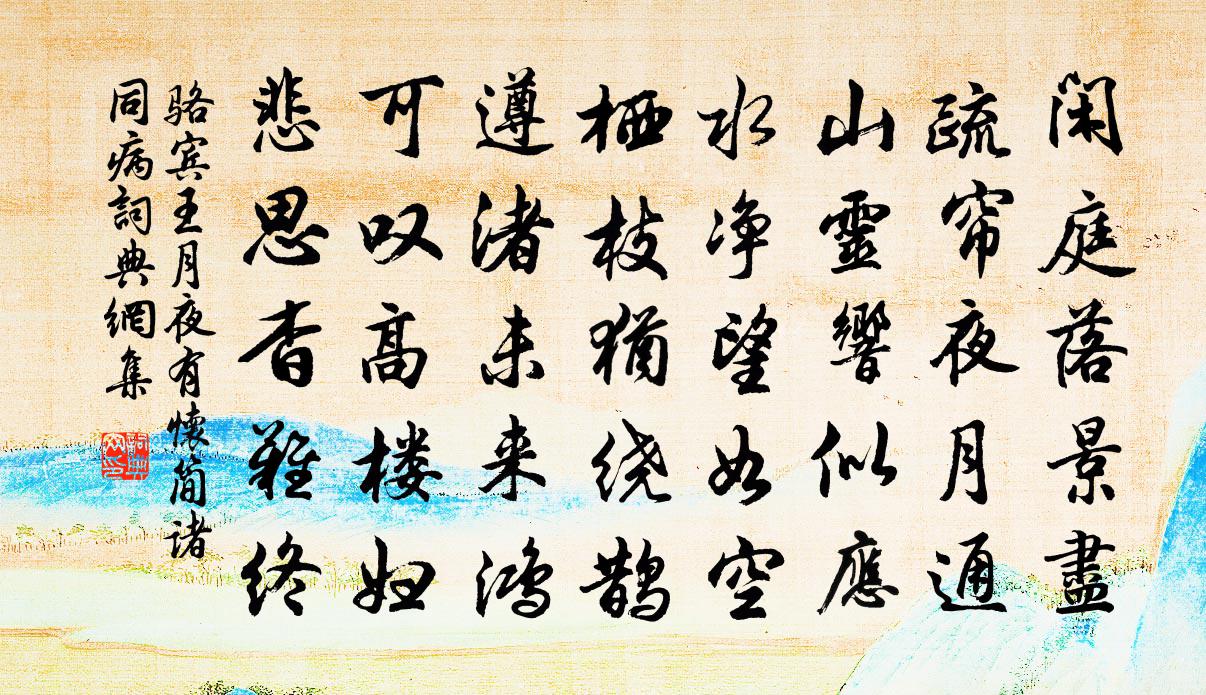 闲庭落景盡
疏帘夜月通
山靈響似應
水净望如空
栖枝犹绕鹊
遵渚未来鴻
可叹高楼妇
悲思杳難终
骆宾王月夜有懷简诸
同病詞典網集